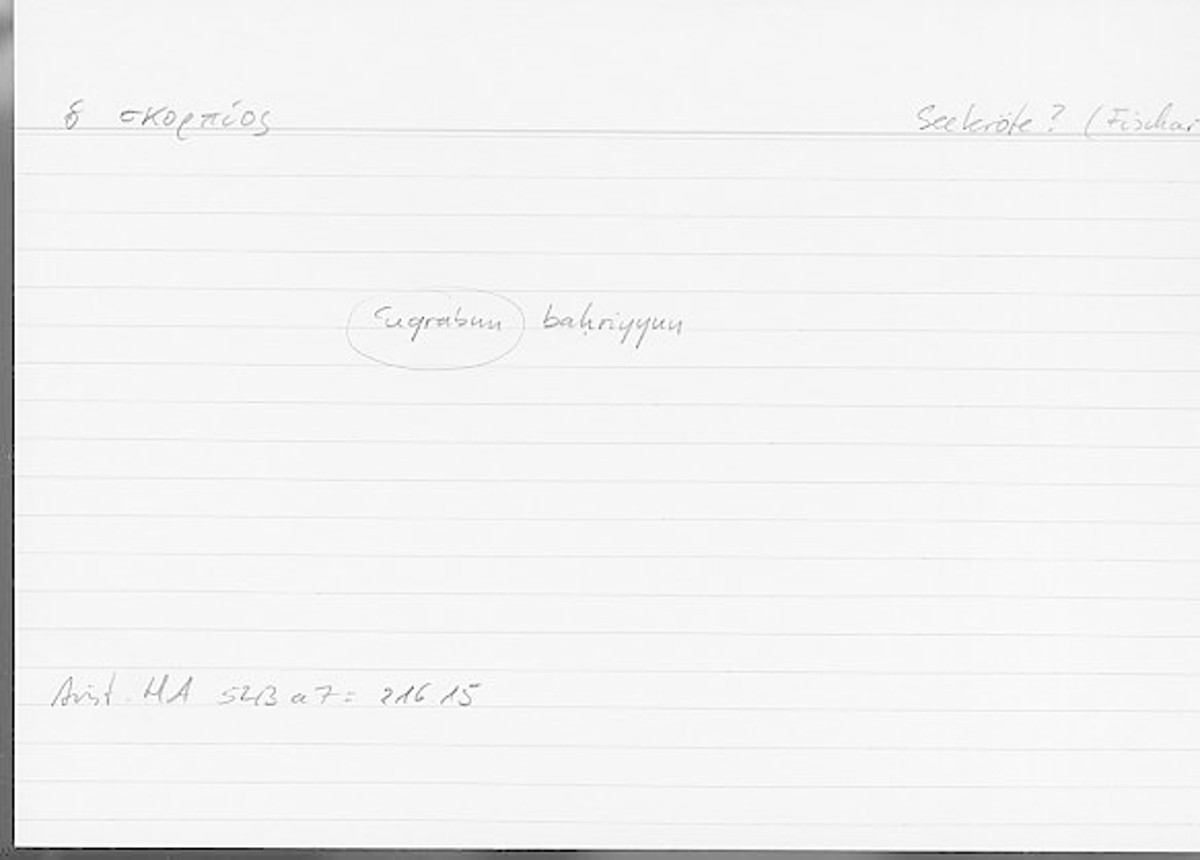 ὁ σκορπίος Seekröte? (Fischar
ʿuqrabun baḥriyyun
Arist. HA 543 a 7 = 216.15